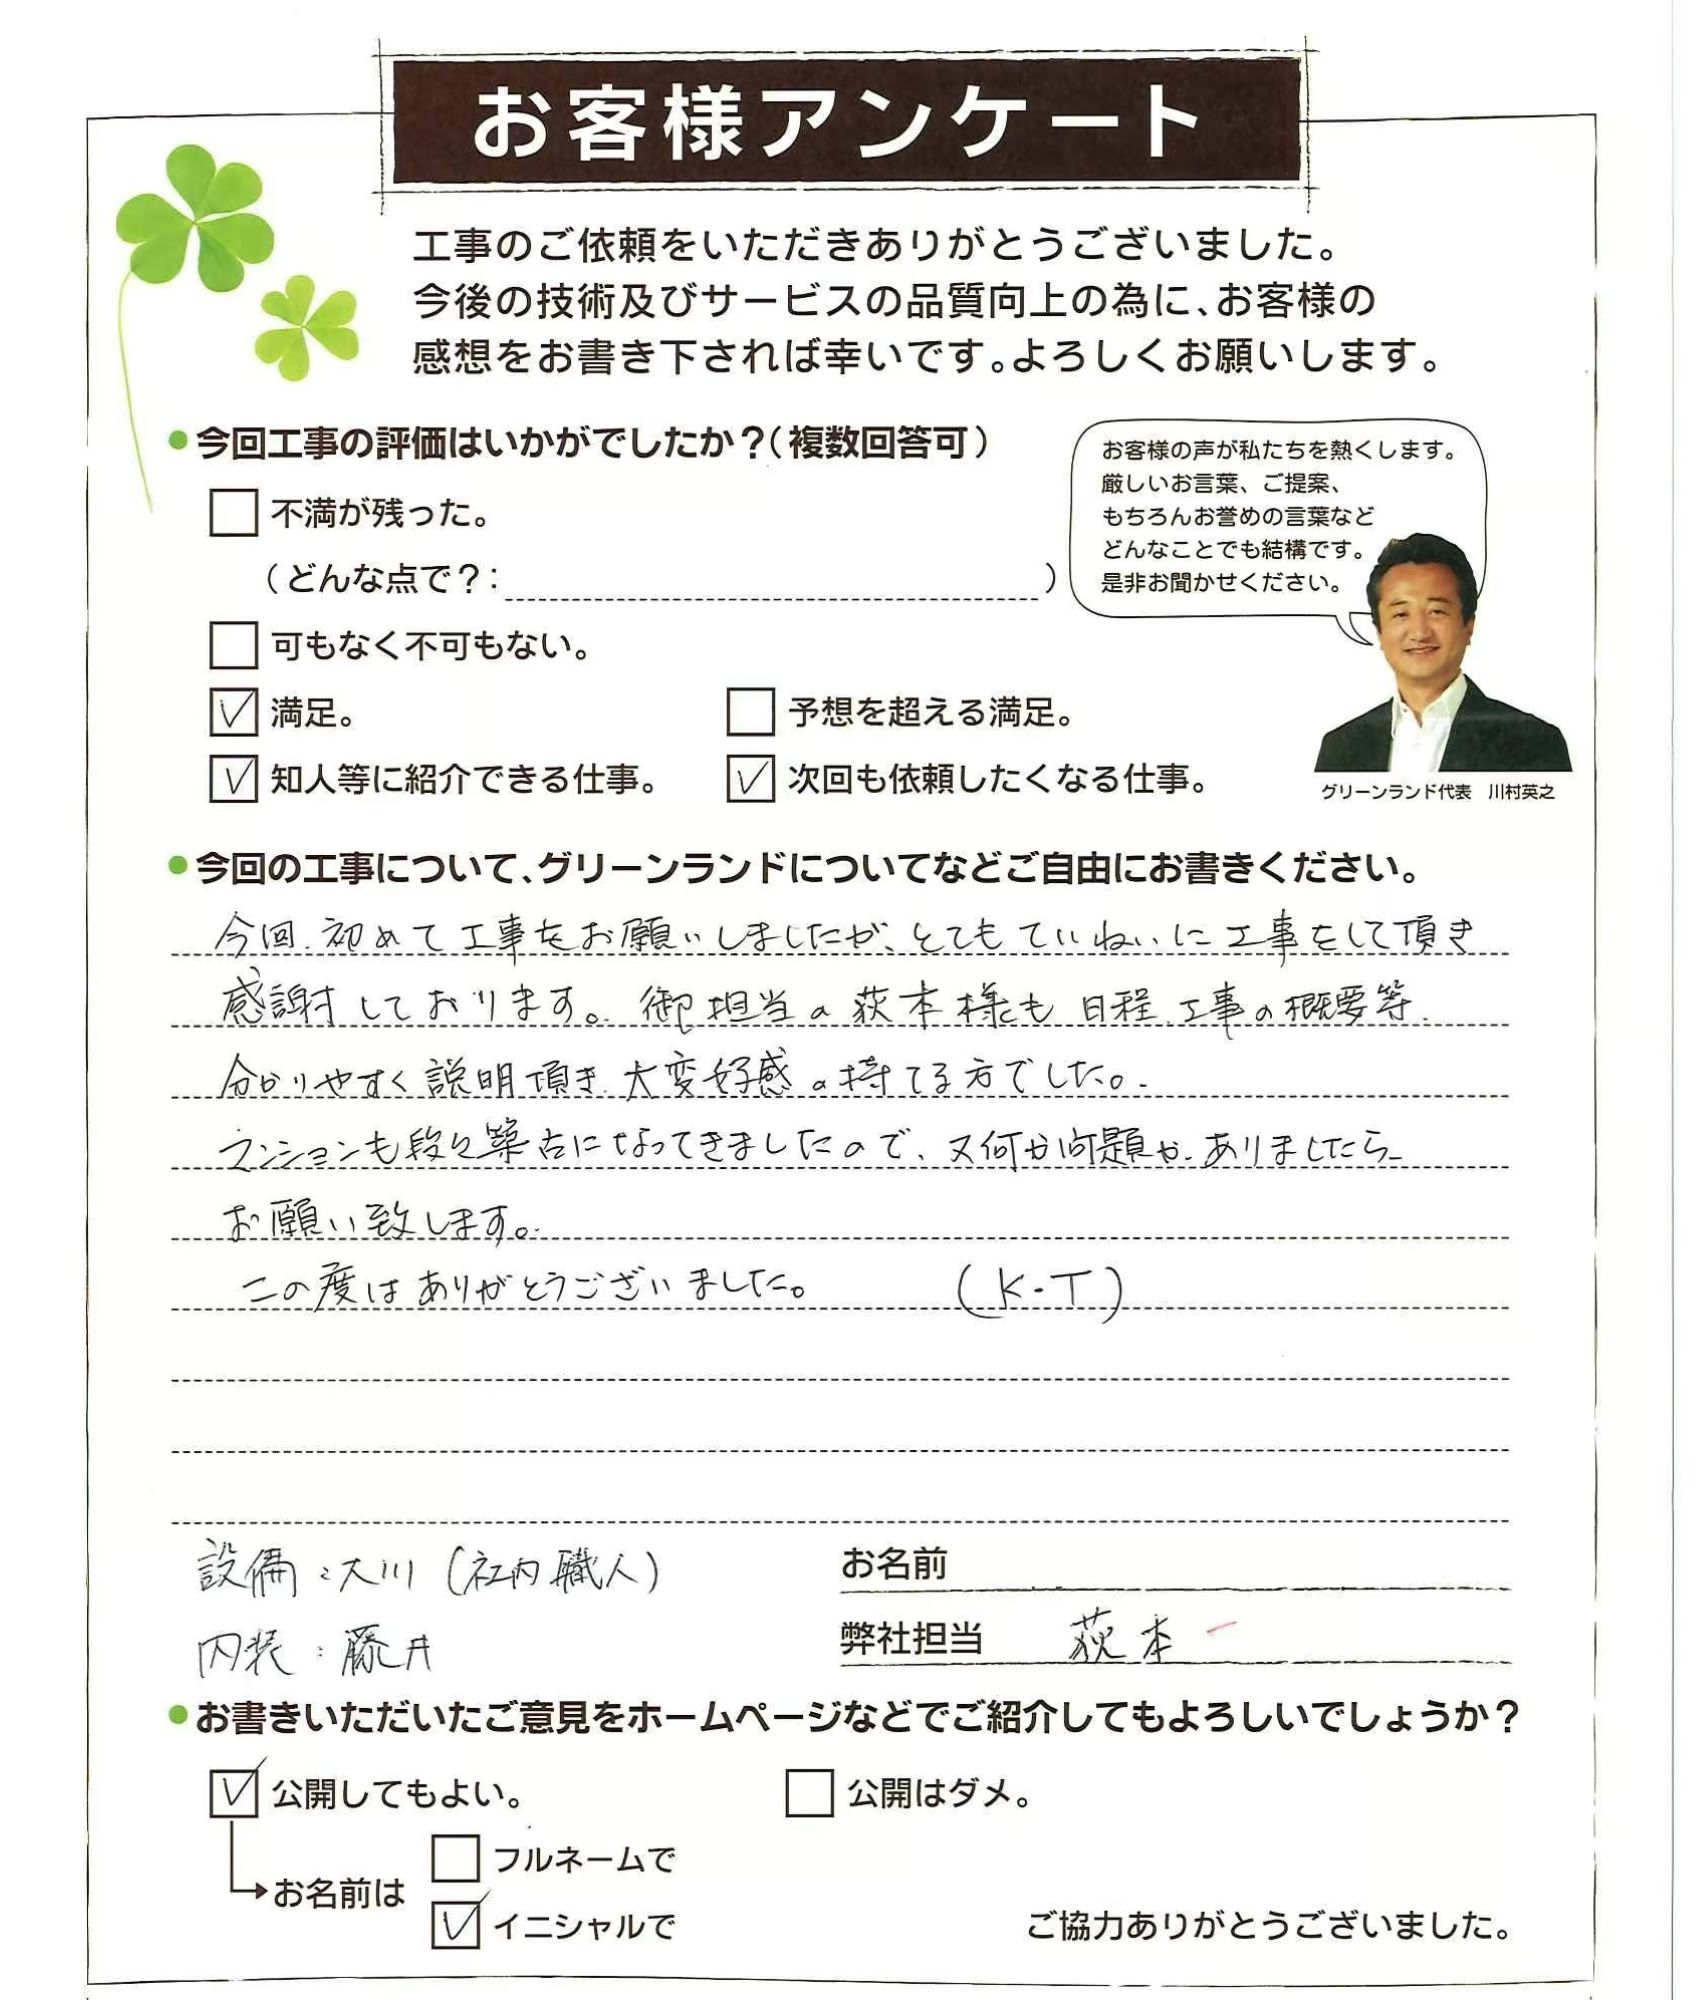 お客様アンケート
工事のご依頼をいただきありがとうございました。
今後の技術及びサービスの品質向上の為に、お客様の
感想をお書き下されば幸いです。よろしくお願いします。
●今回工事の評価はいかがでしたか？（複数回答可）
お客様の声が私たちを熱くします。
厳しいお言葉、ご提案、
もちろんお誉めの言葉など
どんなことでも結構です。
是非お聞かせください。
不満が残った。
（どんな点で？：　）
可もなく不可もない。
満足。
予想を超える満足。
知人等に紹介できる仕事。
次回も依頼したくなる仕事。
グリーンランド代表　川村英之
●今回の工事について、グリーンランドについてなどご自由にお書きください。
今回、初めて工事をお願いしましたが、とてもていねいに工事をして頂き
感謝しております。御担当の荻本様も日程、工事の概要等、
分かりやすく説明頂き、大変好感の持てる方でした。
マンションも段々築古になってきましたので、又何か問題がありましたら
お願い致します。
この度はありがとうございました。　（K・T）
設備：大川（社内職人）
お名前
内装：藤井
弊社担当　荻本
●お書きいただいたご意見をホームページなどでご紹介してもよろしいでしょうか？
公開してもよい。
公開はダメ。
フルネームで
お名前は
イニシャルで
ご協力ありがとうございました。